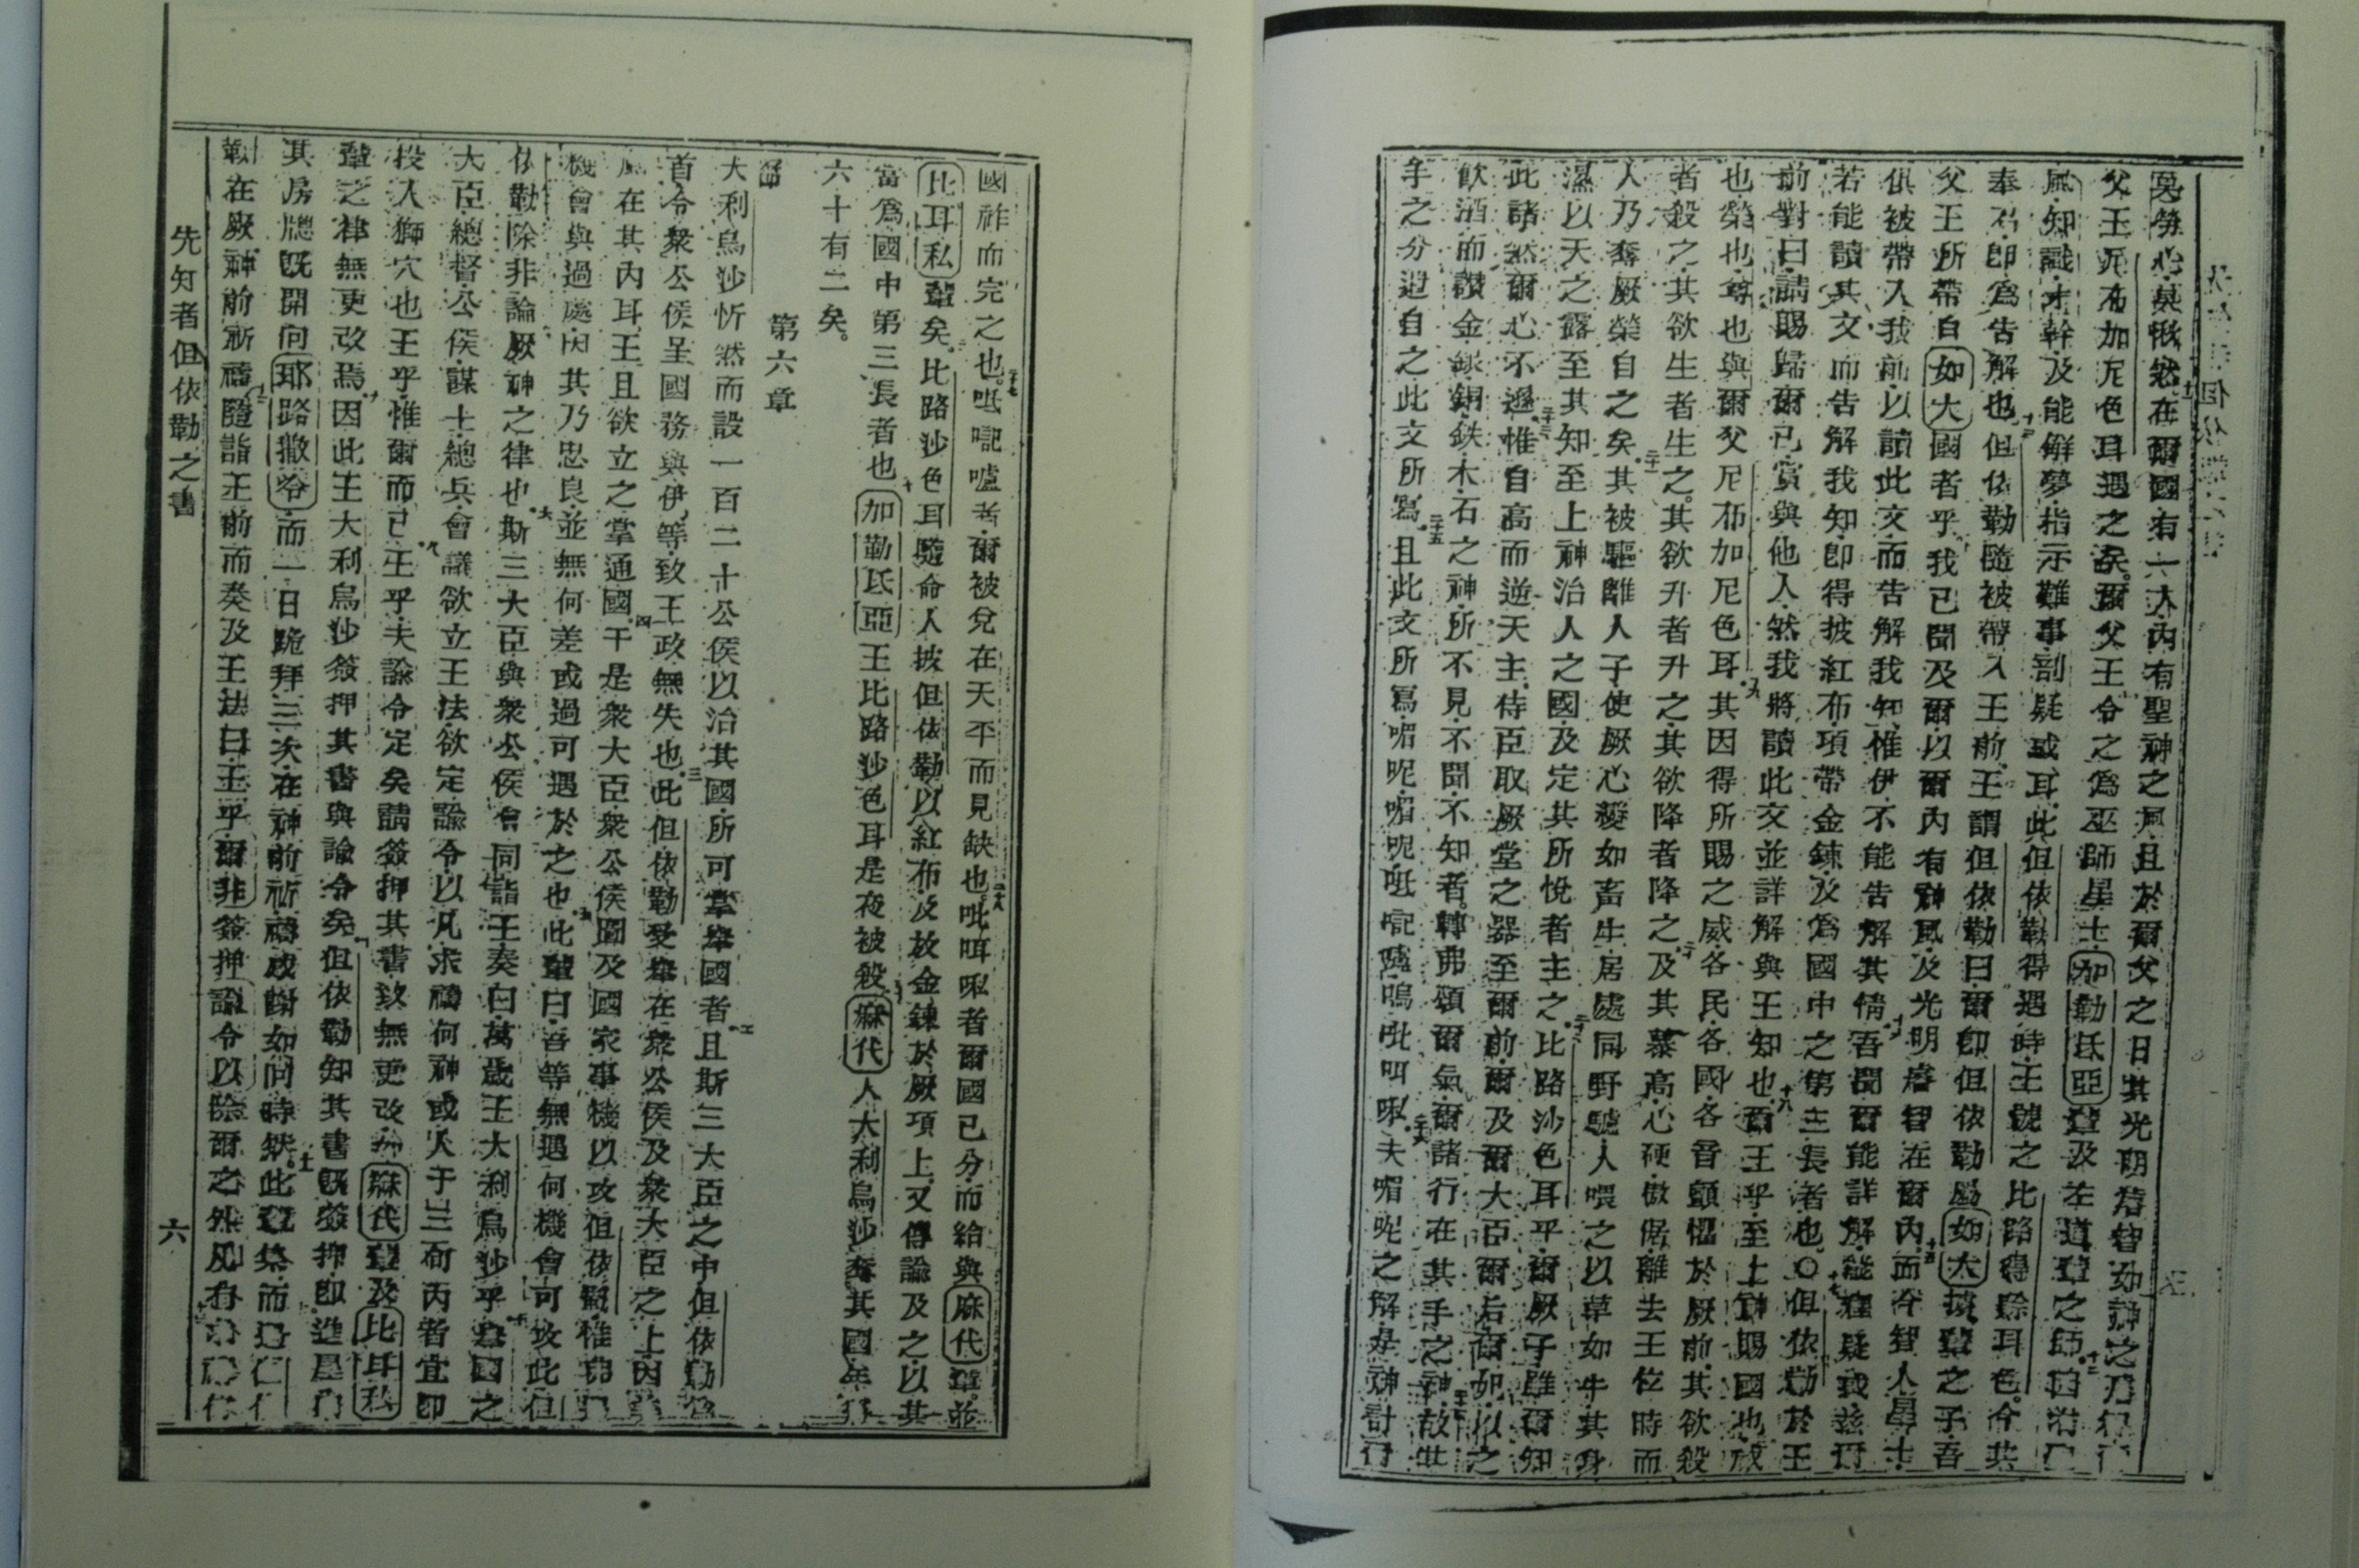 莫勞心莫愀然在爾國有一人內有聖神之風且於爾父之日其光明睿智如神之
父王尼布加尼色耳遇之矣爾父王令之爲巫師星士加勒氐亞輩及左道輩之師
風知識才幹及能解夢指示難事剖疑或耳此但依勒得遇時王
奉召即爲告解也但依勒隨被帶入王前王謂但依勒曰爾即但依勒屬如大擄輩之子吾
父王所帶自如大國者乎我已聞及爾以爾內有神風及光明睿智在爾內而今智人星士
俱被帶入我前以讀此文而告解我知惟伊不能告解其情吾聞爾能詳解能釋疑
若能讀其文而告解我知即得披紅布項帶金鍊及爲國中之第三長者也〇但依勒於王
前對曰請賜歸爾己賞與他人然我將讀此文並詳解與王知也爾王乎至上神賜國也
也榮也尊也與爾父尼布加尼色耳其因得所賜之威各民各國各音顫慍於厥前其欲殺
者殺之其欲生者生之其欲升者升之其欲降者降之及其慕高心硬傲倨離去王位時而
人乃奪厥榮自之矣其被驅離人子使厥心變如畜生居處同野驢人喂之以草如牛其身
濕以天之露至其知至上神治人之國及定其所悅者主之比路沙色耳乎爾厥子雖爾知
此諸然爾心不遜惟自高而逆天主侍臣取厥堂之器至爾前爾及爾大臣爾后爾如以之
飲酒而讚金銀銅鉄木石之神所不見不聞不知者轉弗頌爾氣爾諸行在其手之神故
手之分迸自之此文所寫且此文所寫𠵼呢𠵼呢呧嚦𠿪嗚吡叫唎夫𠵼呢之解是神計
國祚而完之也呧𠿪者爾被兌在天平而見缺也吡咡唎者爾國已分而給與麻代輩並
比耳私輩矣比路沙色耳隨命人披但依勒以紅布及放金鍊於厥項上又傳諭及之以其
當爲國中第三長者也加勒氐亞王比路沙色耳是夜被殺麻代人大利烏沙奪其國年
六十有二矣
第六章
大利烏沙忻然而設一百二十公侯以治其國所可掌舉國者且斯三大臣之中但依勒爲
首令衆公侯呈國務與伊等致王政無失也此但依勒受舉在衆公侯及衆大臣之上因
風在其內耳王且欲立之掌通國于是衆大臣衆公侯圖及國家事機以攻但依勒惟弗
機會與過處因其乃忠良並無何差或過可遇於之也此輩曰吾等無遇何機會可攻此但
依勒除非論厥神之律也斯三大臣與衆公侯會同詣王奏曰萬歲王大利烏沙乎舉國之
大臣總督公侯謀士總兵會議欲立王法欲定諭令以凡求禱何神或人于三旬內者宜即
投入獅穴也王乎惟爾而已王乎夫諭令定矣請簽押其書致無更改如麻代輩及比耳私
輩之律無更改焉因此王大利烏沙簽押其書與諭令矣但依勒知其書既簽押即進屋
其房牕既開向耶路撒冷而一日跪拜三次在神前祈禱感謝如向時然此輩集而遇但依
勒在厥神前祈禱隨詣王前而奏及王法曰王乎爾非簽押諭令以除爾之外凡有
先知者但依勒之書
六